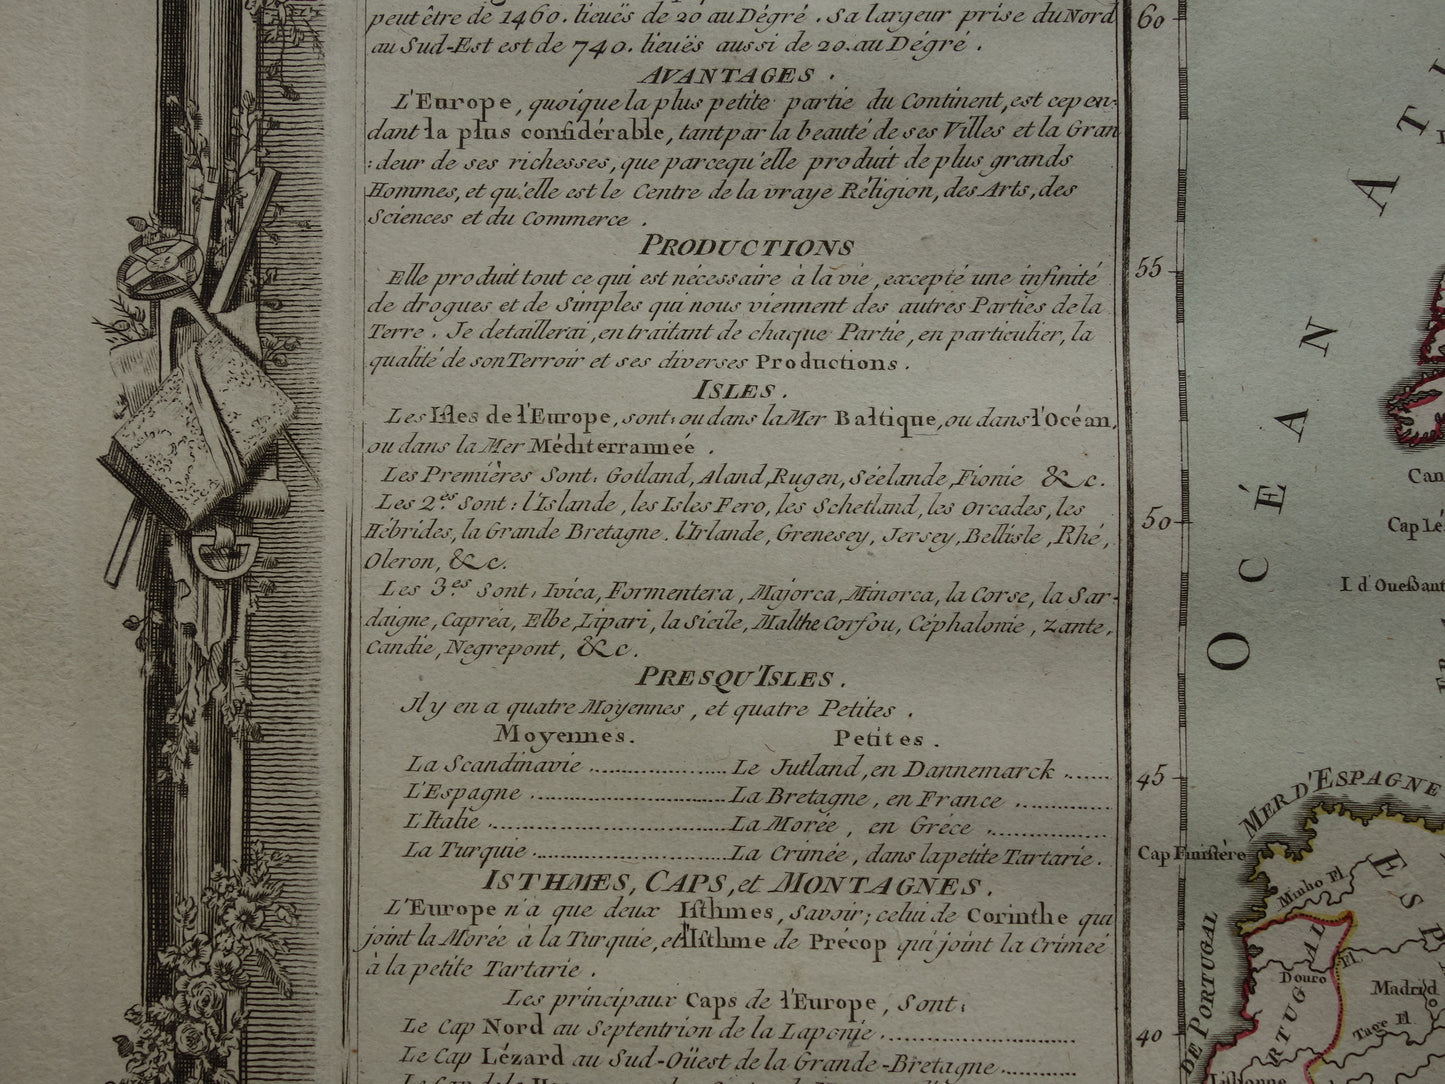 peut être de 1460. lieuës de 20 au Dégré. Sa largeur prise du Nord
au Sud-Est est de 740. lieuës aussi de 20. au Dégré.
AVANTAGES.
L'Europe, quoique la plus petite partie du Continent, est cepen-
dant la plus considérable, tant par la beauté de ses Villes et la Gran
:deur de ses richesses, que parcequ'elle produit de plus grands
Hommes, et qu'elle est le Centre de la vraye Réligion, des Arts, des
Sciences et du Commerce.
PRODUCTIONS
Elle produit tout ce qui est nécessaire à la vie, excepté une infinité
de drogues et de Simples qui nous viennent des autres Parties de la
Terre. Je detaillerai, en traitant de chaque Partie, en particulier, la
qualité de son Terroir et ses diverses Productions.
ISLES.
Les Isles de l'Europe, sont: ou dans la Mer Baltique, ou dans l'Océan,
ou dans la Mer Méditerrannéé.
Les Premières Sont: Gotland, Aland, Rugen, Séelande, Fionie &c.
Les 2.es Sont: l'Islande, les Isles Fero, les Schetland, les Orcades, les
Hébrides, la Grande Bretagne, l'Irlande, Grenesey, Jersey, Bellisle, Rhé,
Oleron, &c.
Les 3.es Sont, Ivica, Formentera, Majorca, Minorca, la Corse, la Sar-
daigne, Capréa, Elbe, Lipari, la Sicile, Malthe Corfou, Céphalonie, Zante,
Candie, Negrepont, &c.
PRESQU'ISLES.
Il y en a quatre Moyennes, et quatre Petites.
Moyennes. Petites.
La Scandinavie ................ Le Jutland, en Dannemarck ......
L'Espagne ................ La Bretagne, en France ............
L'Italie ................ La Morée, en Gréce ............
La Turquie ................ La Crimée, dans la petite Tartarie.
ISTHMES, CAPS, et MONTAGNES.
L'Europe n'a que deux Isthmes, Savoir; celui de Corinthe qui
joint la Morée à la Turquie, et l'Isthme de Précop qui joint la Crimeé
à la petite Tartarie.
Les principaux Caps de l'Europe, Sont:
Le Cap Nord au Septentrion de la Laponie ................
Le Cap Lézard au Sud-Oüest de la Grande-Bretagne ............
60
55
50
45
40
OCÉAN ATL
Can
Cap Lé
I d'Oueßant
MER D'ESPAGNE
Cap Finistère
Minho Fl
ESP
DE PORTUGAL
Douro
Fl.
Madrid
PORTUGAL
Tage Fl
Lisbonne